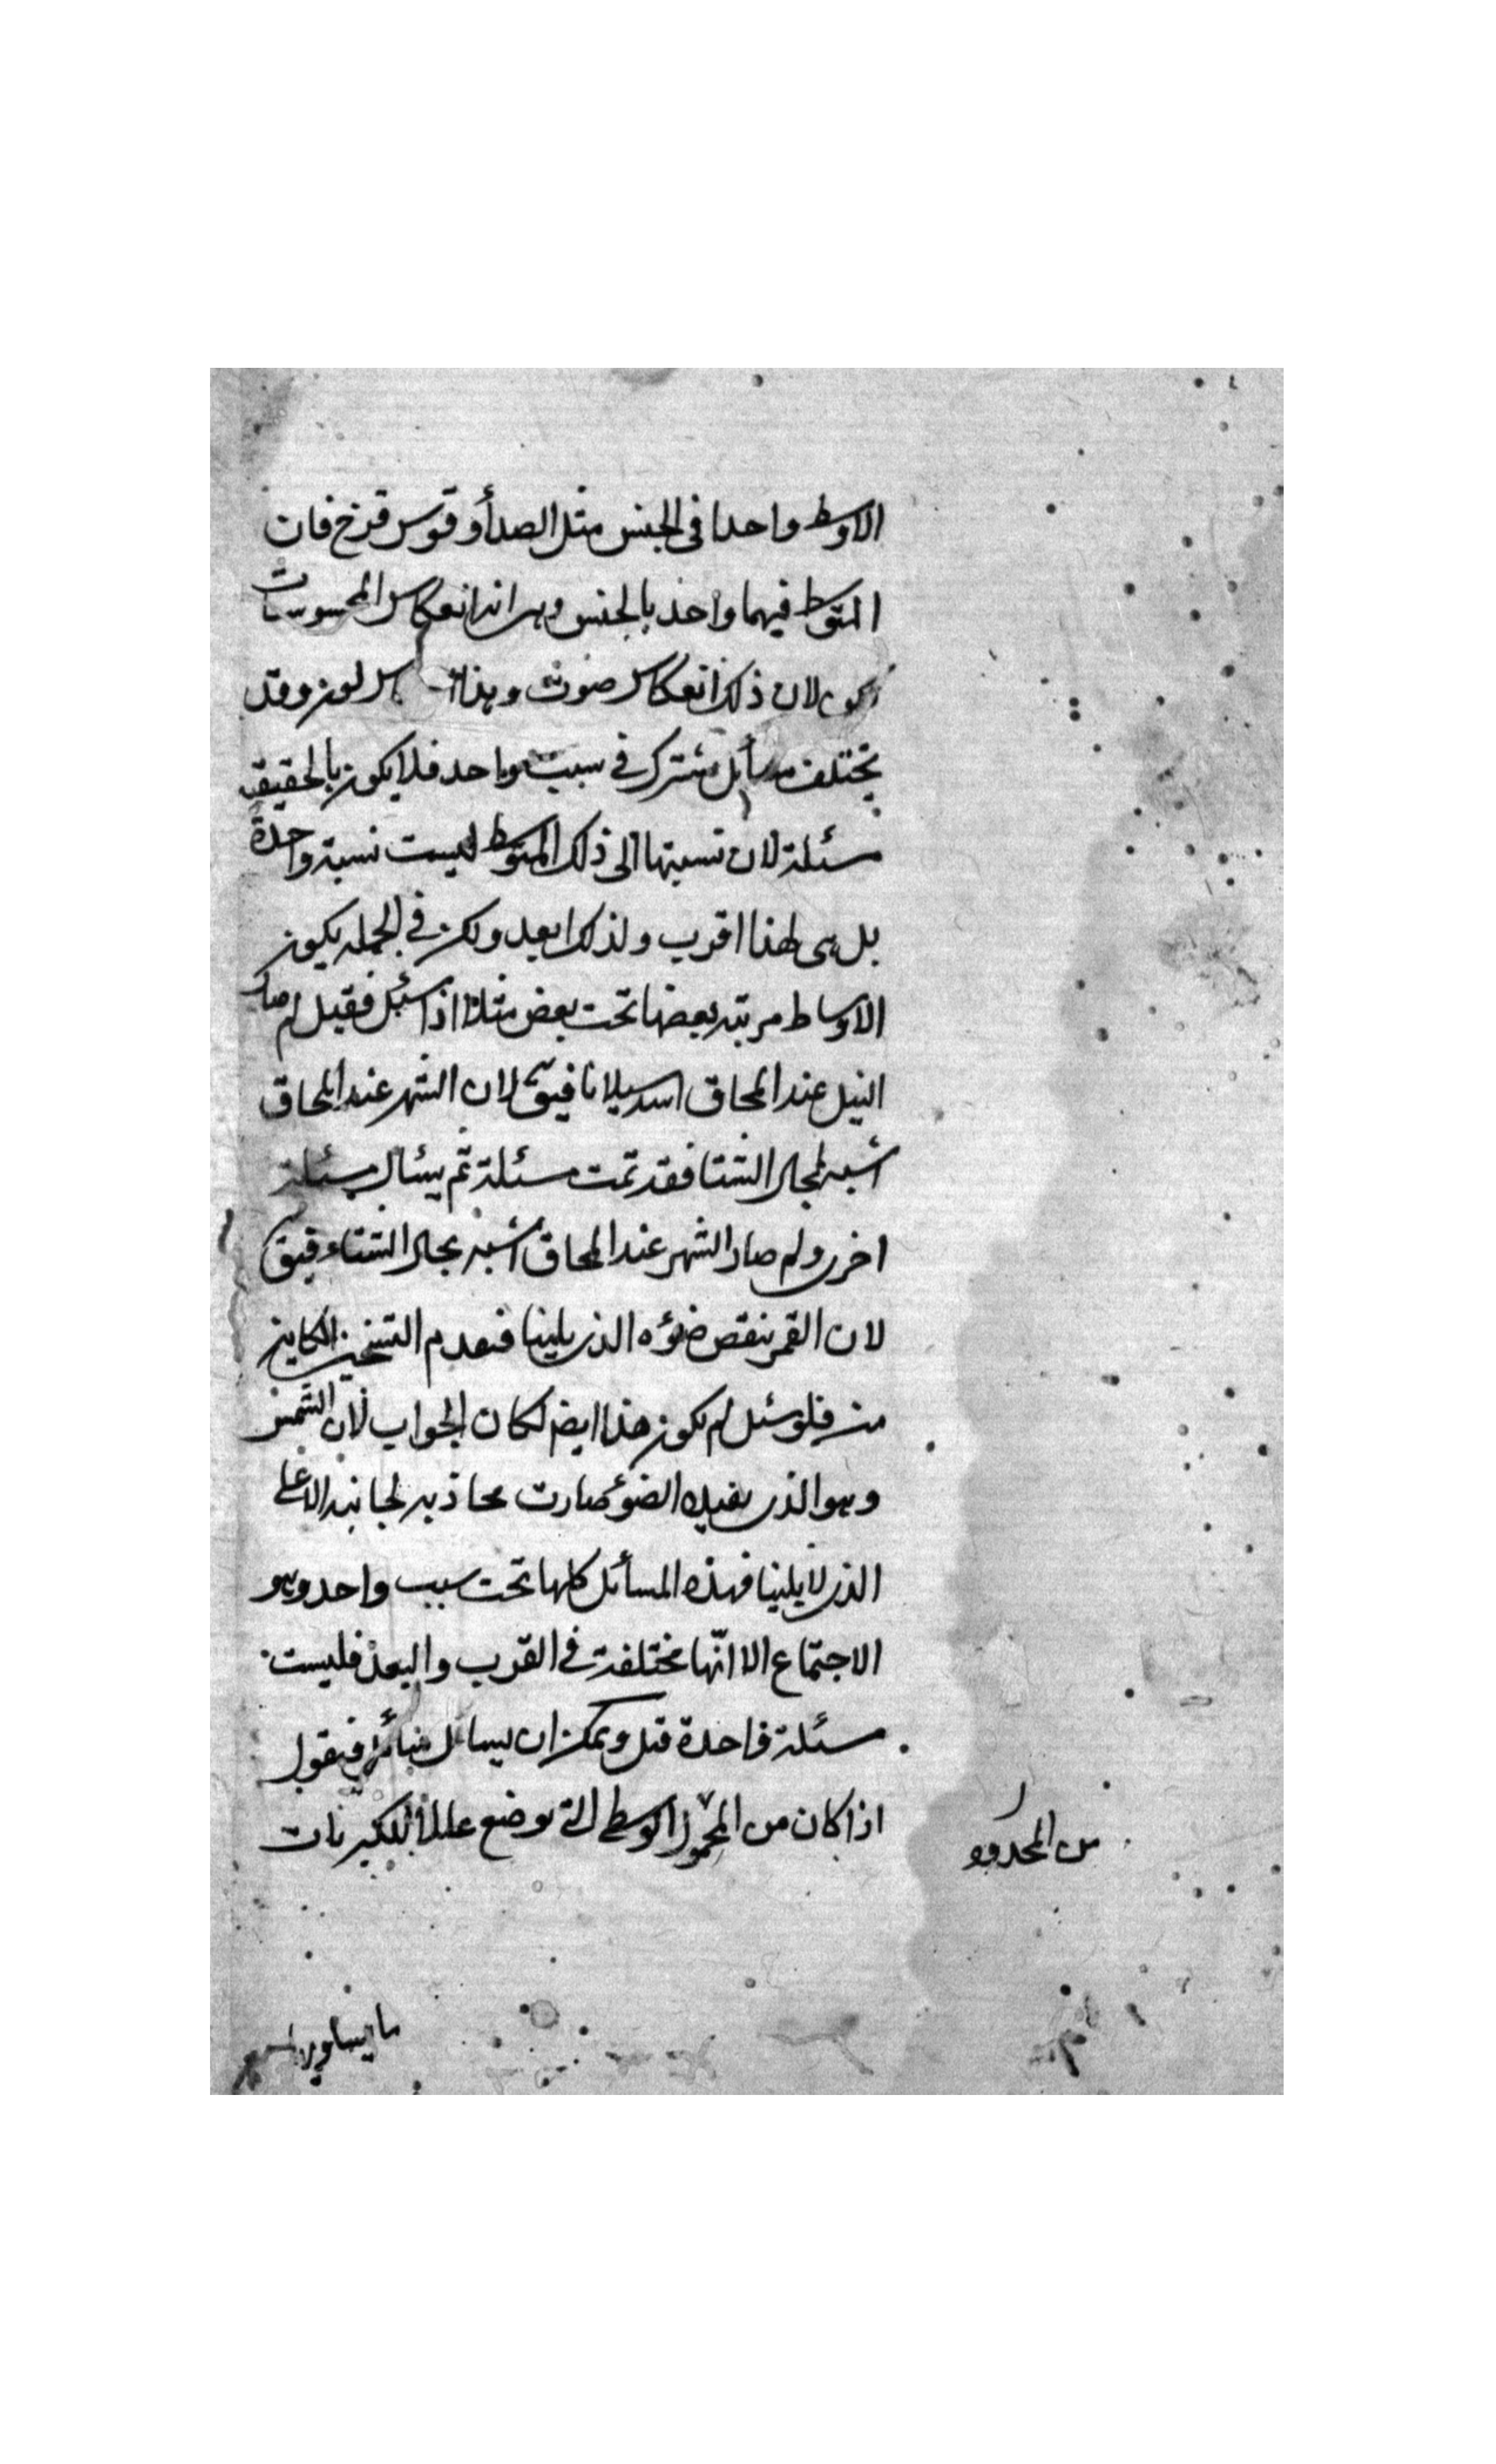 الاوسط واحدا فى الجنس مثل الصدأ وقوس قزخ فان
المتوسط فيهما واحد بالجنس وهو انه انعكاس المحسوسات
لان ذلك انعكاس صوت وهذا لون وقد
تختلف مسأيل تشترك فى سبب واحد فلا يكون بالحقيقة
مسئلة لان نسبتها الى ذلك المتوسط ليست نسبة واحدة
بل هى لهذا اقرب ولذلك ابعد ولكن فى الجمله يكون
الاوساط مرتبه بعضها تحت بعض مثلا اذا سئل فقيل لم صار
النيل عند المحاق اسد سيلانا فيق لان الشهر عند المحاق
أشبه بحال الشتا فقد تمت مسئلة ثم يسئال مسئلة
اخرى ولم صار الشهر عند المحاق أشبه بحال الشتاء فيق
لان القمر نقص ضوؤه الذى يلينا فيعدم التسخين الكاين
منه فلو سئل لم يكون هذا ايضا لكان الجواب لان الشمس
وهو الذى يفيده الضوء صارت محاذيه لجانبه الاعلى
الذى لا يلينا فهذه المسأئل كلها تحت سبب واحد وهو
الاجتماع الا انّها مختلفة فى القرب والبعد فليست
مسئلة واحدة قيل ويمكن ان يسائل فيقول
اذا كان من المحمول الوسطى التى توضع عللا للكبريات
من المحدود
ما يساوي